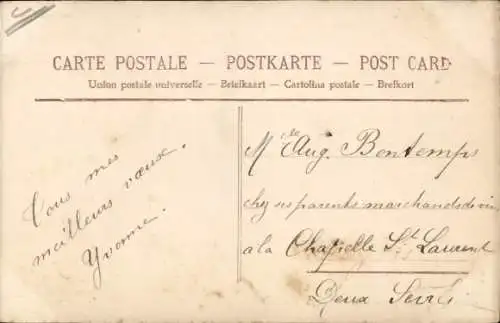 CARTE POSTALE — POSTKARTE — POST CARD
Union postale universelle — Briefkaart — Cartolina postale — Brefkort
Tous mes
meilleurs vœux.
Yvonne.
Mlle Aug. Bontemps
chez ses parents marchands de vin
a la Chapelle St Laurent
Deux Sevres